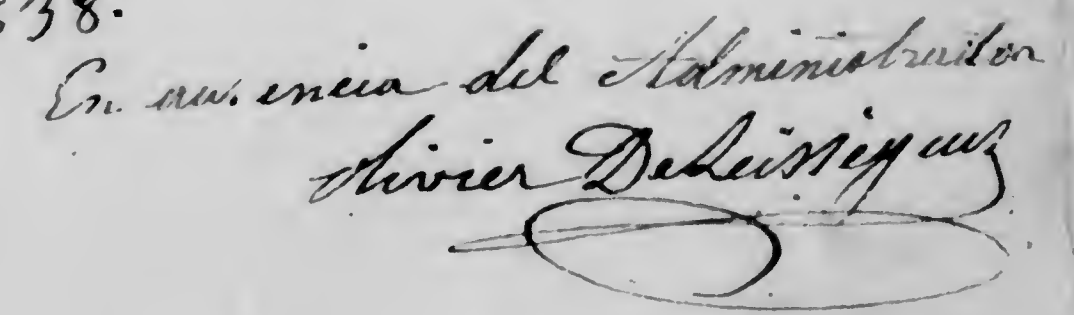 38.
En ausencia del Administrador
Olivier Deleissegues